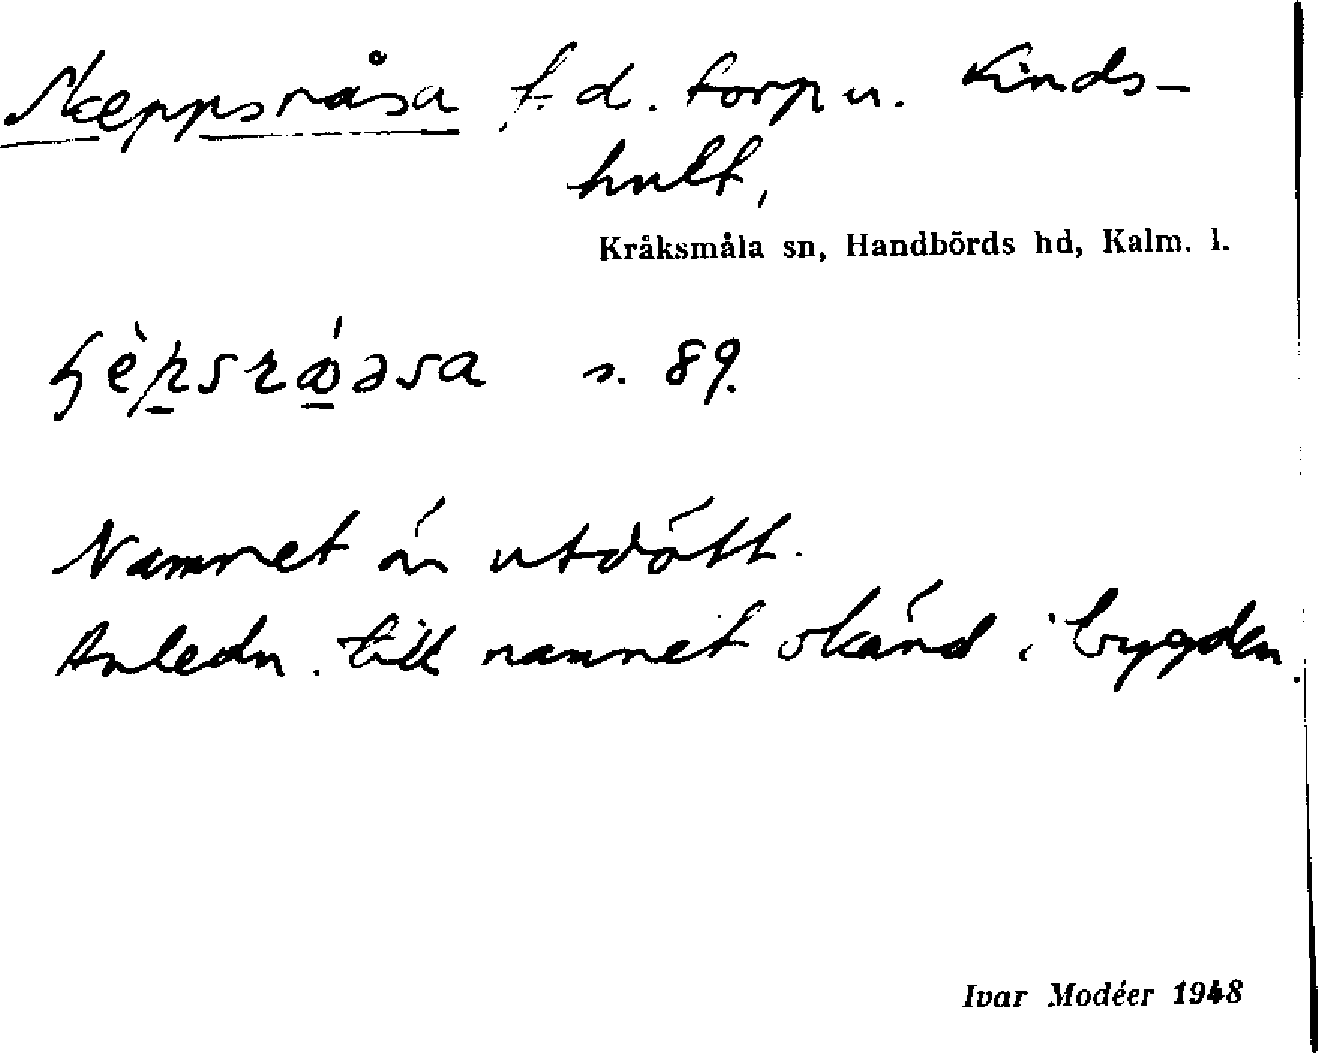 Skeppsråsa f.d. torp u. Kinds-
hult,
Kråksmåla sn, Handbörds hd, Kalm. l.
s. 89.
Namnet är utdött.
Anledn. till namnet okänd i bygden.
Ivar Modéer 1948